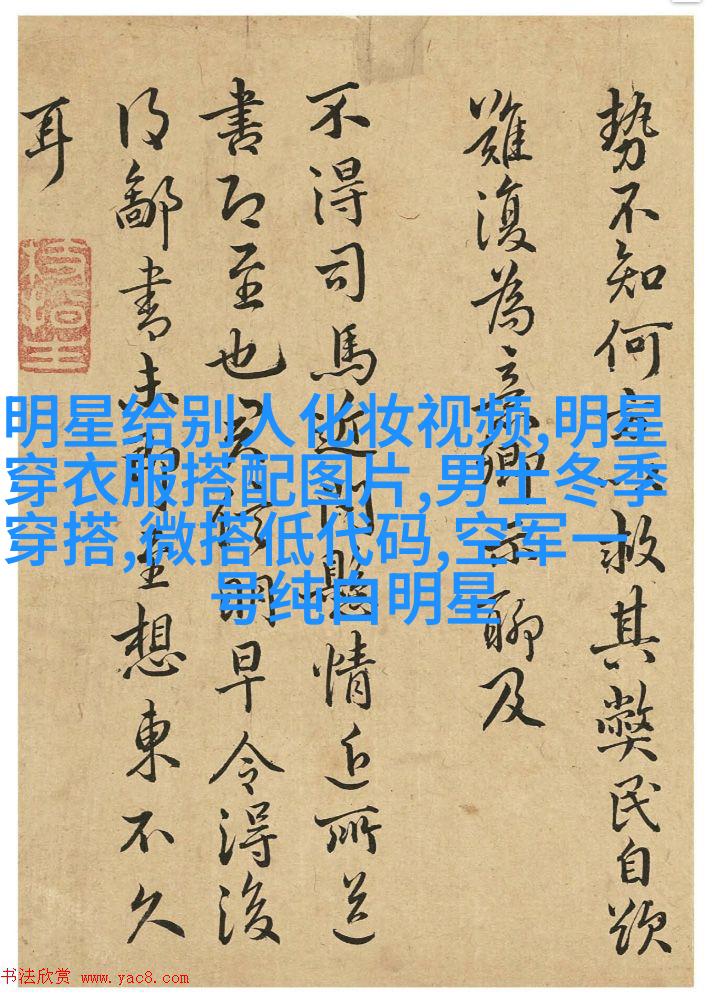 明星给别人化妆视频,明星
穿衣服搭配图片,男士冬季
穿搭,微搭低代码,空军一
号纯白明星
勢不知何救其弊民自
難復為卿聊及
不得司馬近問懸情近所送
書即至也早令得後
得鄙書未至想東不久
耳
书法欣赏 www.yac8.com